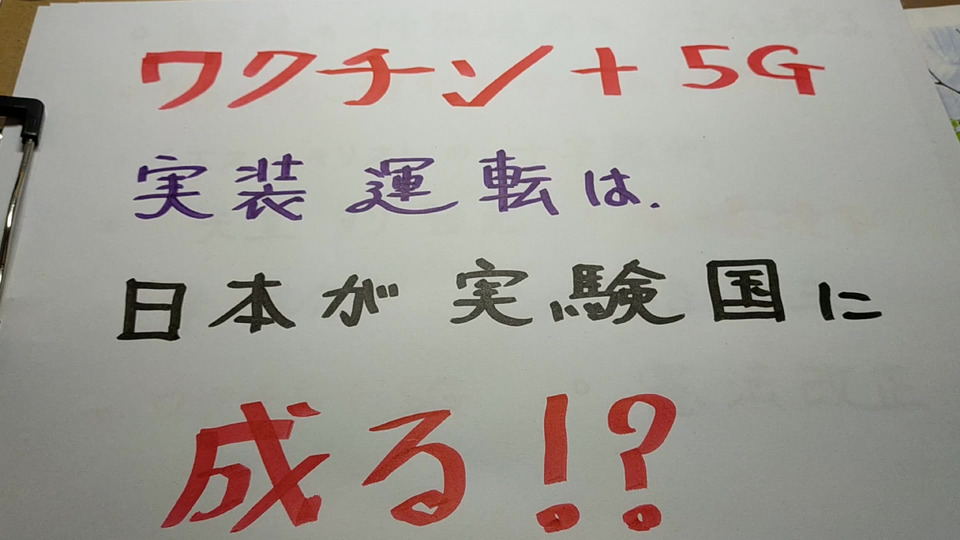 ワクチン+5G
実装運転は.
日本が実験国に
成る!?